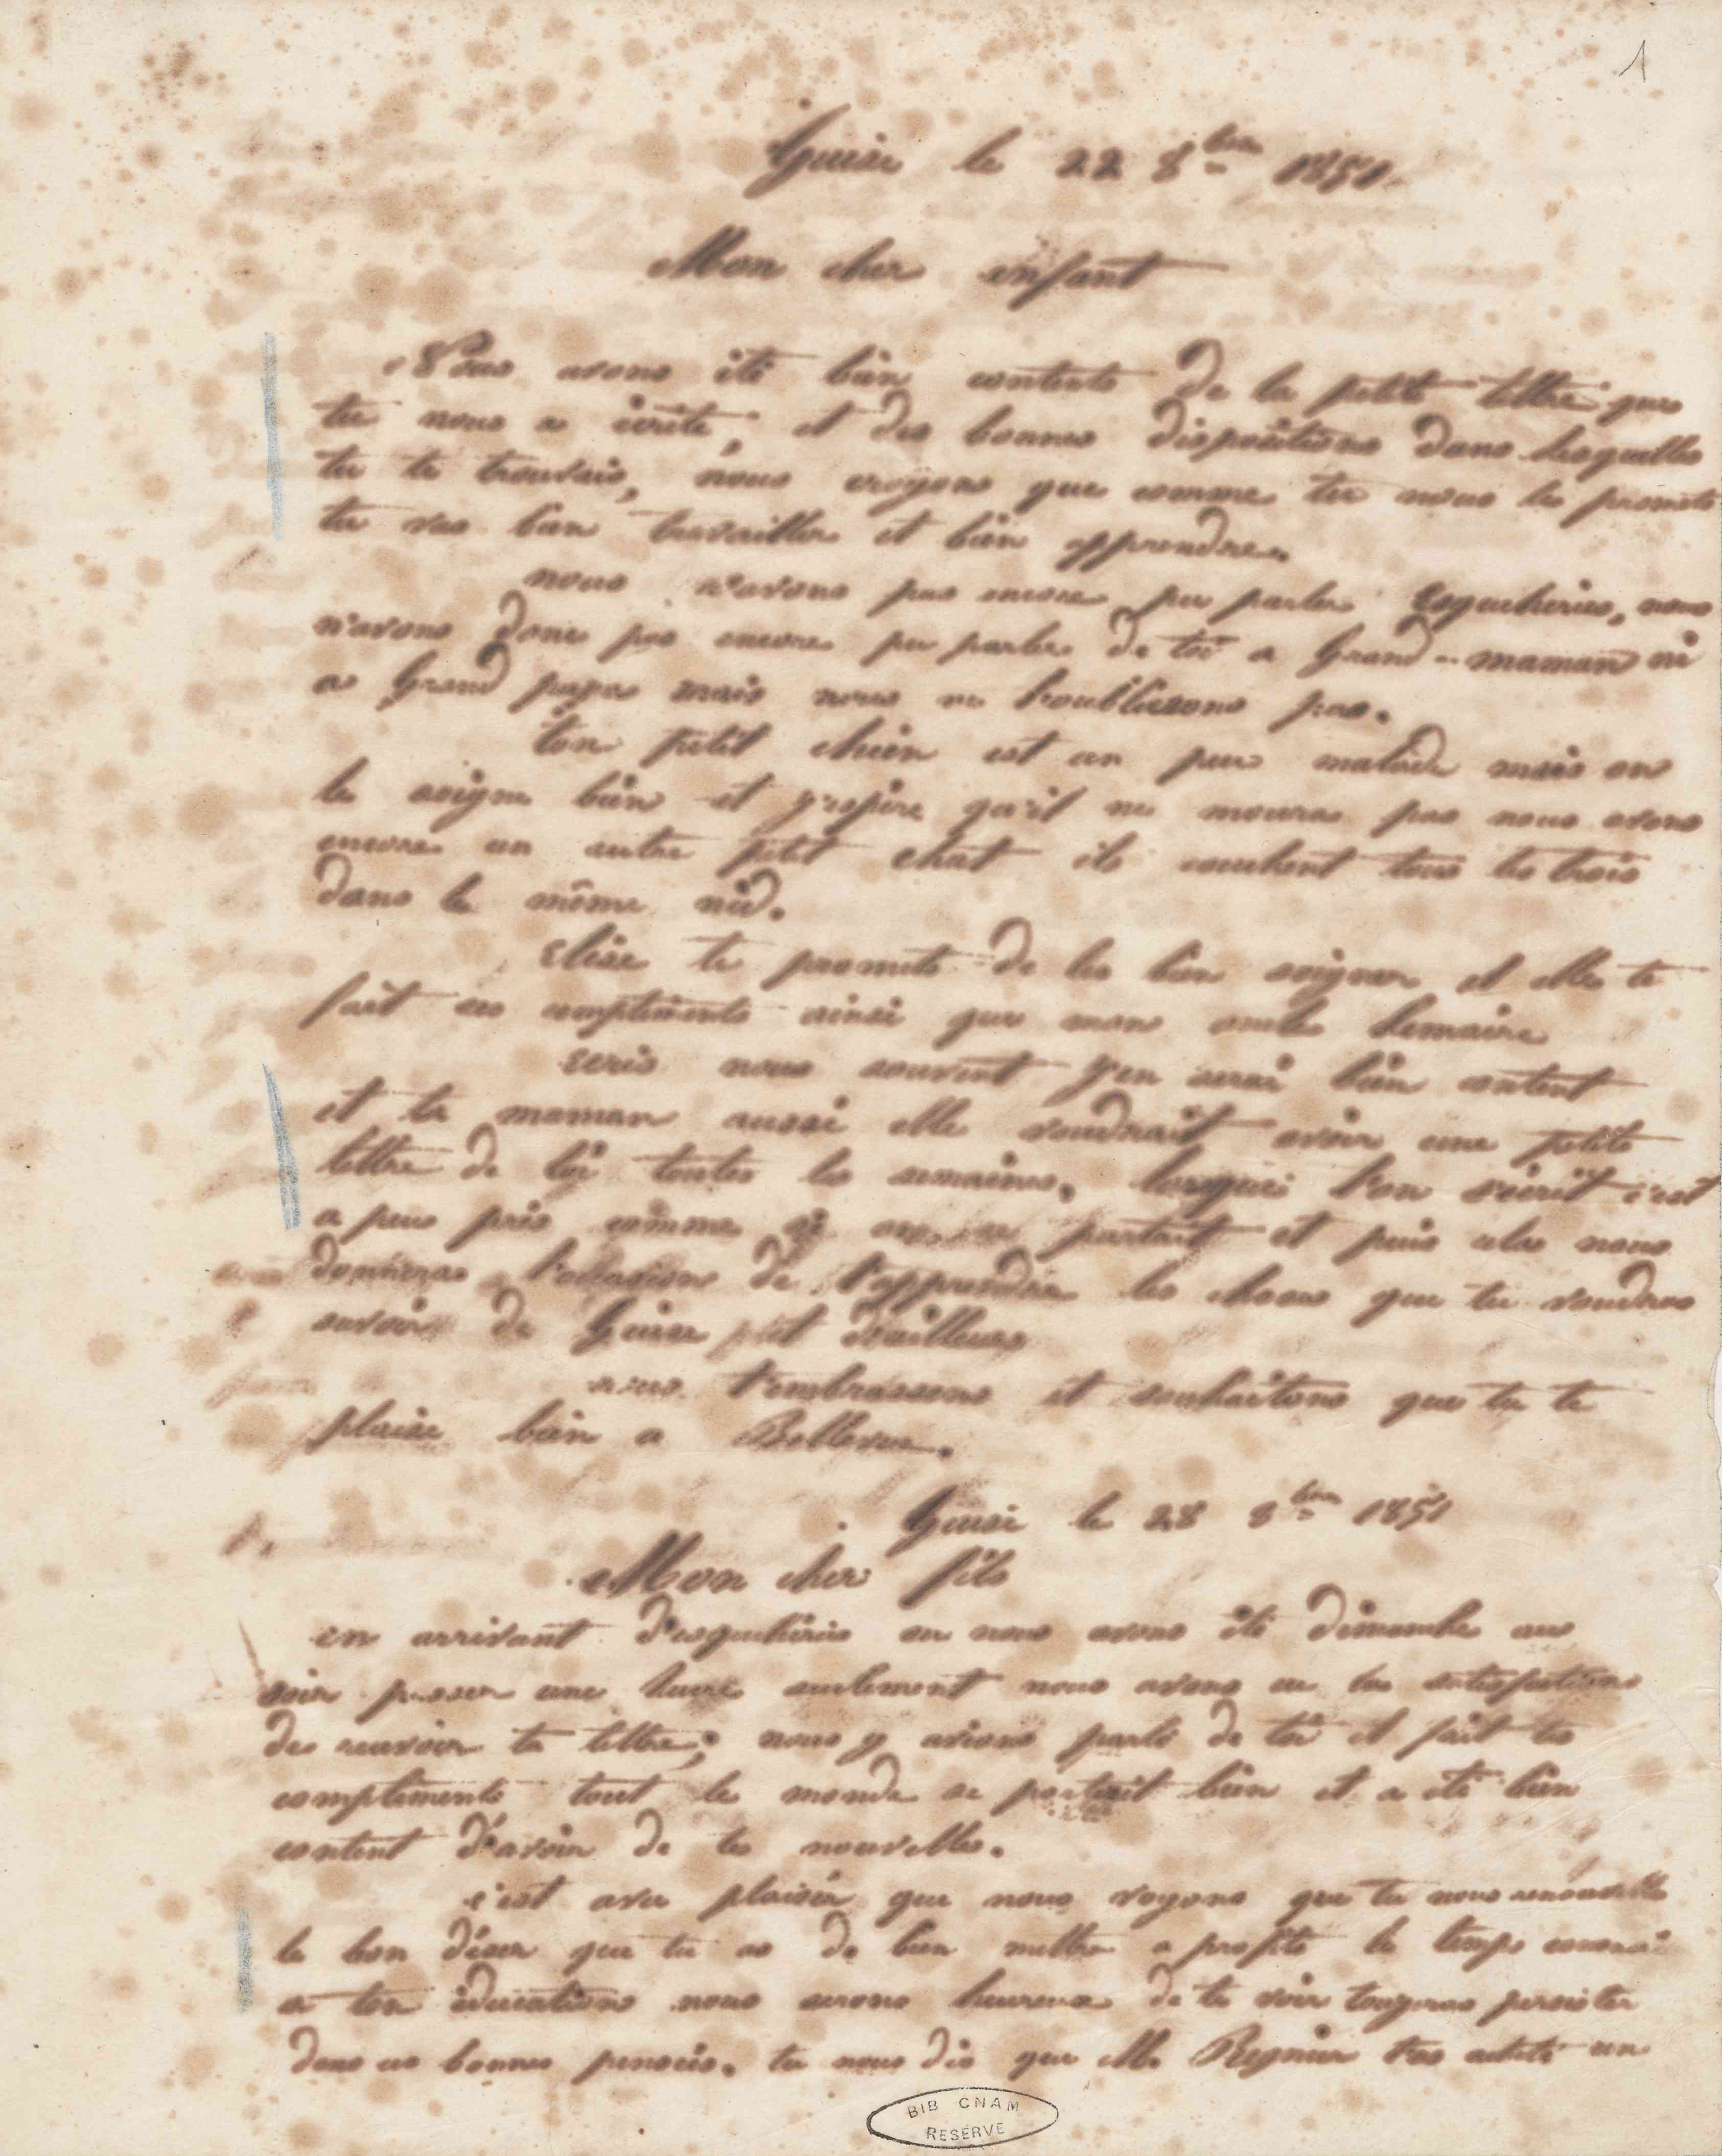 1
Guise le 22 8bre 1851
Mon cher enfant
Nous avons été bien contents de la petite lettre que
tu nous a écrite, et des bonnes dispositions dans lesquelles
tu te trouvais, nous croyons que comme tu nous le promets
tu vas bien travailler et bien apprendre.
nous n'avons pas encore pu parler Esquehéries, nous
n'avons donc pas encore pu parler de toi a Grand-maman ni
a Grand papa mais nous ne l'oublierons pas.
ton petit chien est un peu malade mais on
le soigne bien et j'espère qu'il ne mourra pas nous avons
encore un autre petit chat ils couchent tous les trois
dans le même nid.
Elise te promets de les bien soigner et elle te
fait ses compliments ainsi que mon oncle Lemaire
ecris nous souvent j'en serai bien content
et ta maman aussi elle voudrait avoir une petite
lettre de toi toutes les semaines. lorsque l'on s'écrit c'est
a peu près comme si on se parlait et puis cela nous
donnera l'occasion de t'apprendre les choses que tu voudras
savoir de Guise et d'ailleurs
nous t'embrassons et souhaitons que tu te
plaise bien a Bellevue.
Guise le 28 8bre 1851
Mon cher fils
en arrivant d'esquehéries ou nous avons été dimanche au
soir passer une heure seulement nous avons eu la satisfaction
de recevoir ta lettre; nous y avions parlé de toi et fait tes
compliments tout le monde se portait bien et a été bien
content d'avoir de tes nouvelles.
c'est avec plaisir que nous voyons que tu nous renouvelle
le bon désir que tu as de bien mettre a profit le temps consacré
a ton éducation nous serons heureux de te voir toujours persister
dans ces bonnes pensées. tu nous dis que Mr Regnier t'as acheté un
BIB CNAM
RESERVE